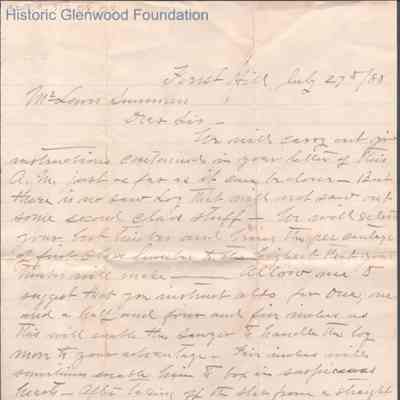 Historic Glenwood Foundation
Forest Hill July 27th/88
Mr Lewis Summers
Dear Sir
We will carry out your
instructions contained in your letter of this
A.M. just as far as it can be done — But
there is no saw log that will not saw out
some second class stuff — We will select
your best timber and bring the percentage
of first class lumber to the highest that your
timber will make — Allow me to
suggest that you instruct also for one, one
and a half and four and five inches as
this will enable the sawyer to handle the log
more to your advantage — Five inches will
sometimes enable him to box in suspicious
hearts — After taking off the slabs from a straight